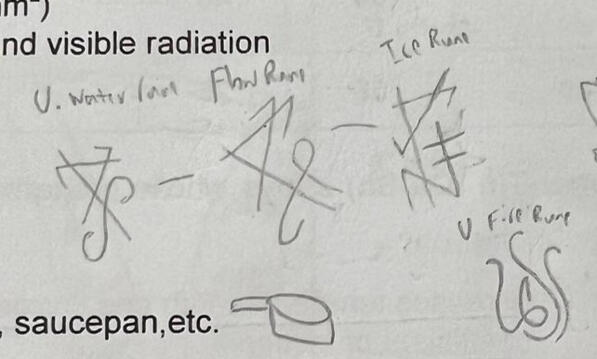 nd visible radiation
Ice Rune
U. Water Flow Rune
U Fire Rune
, saucepan,etc.